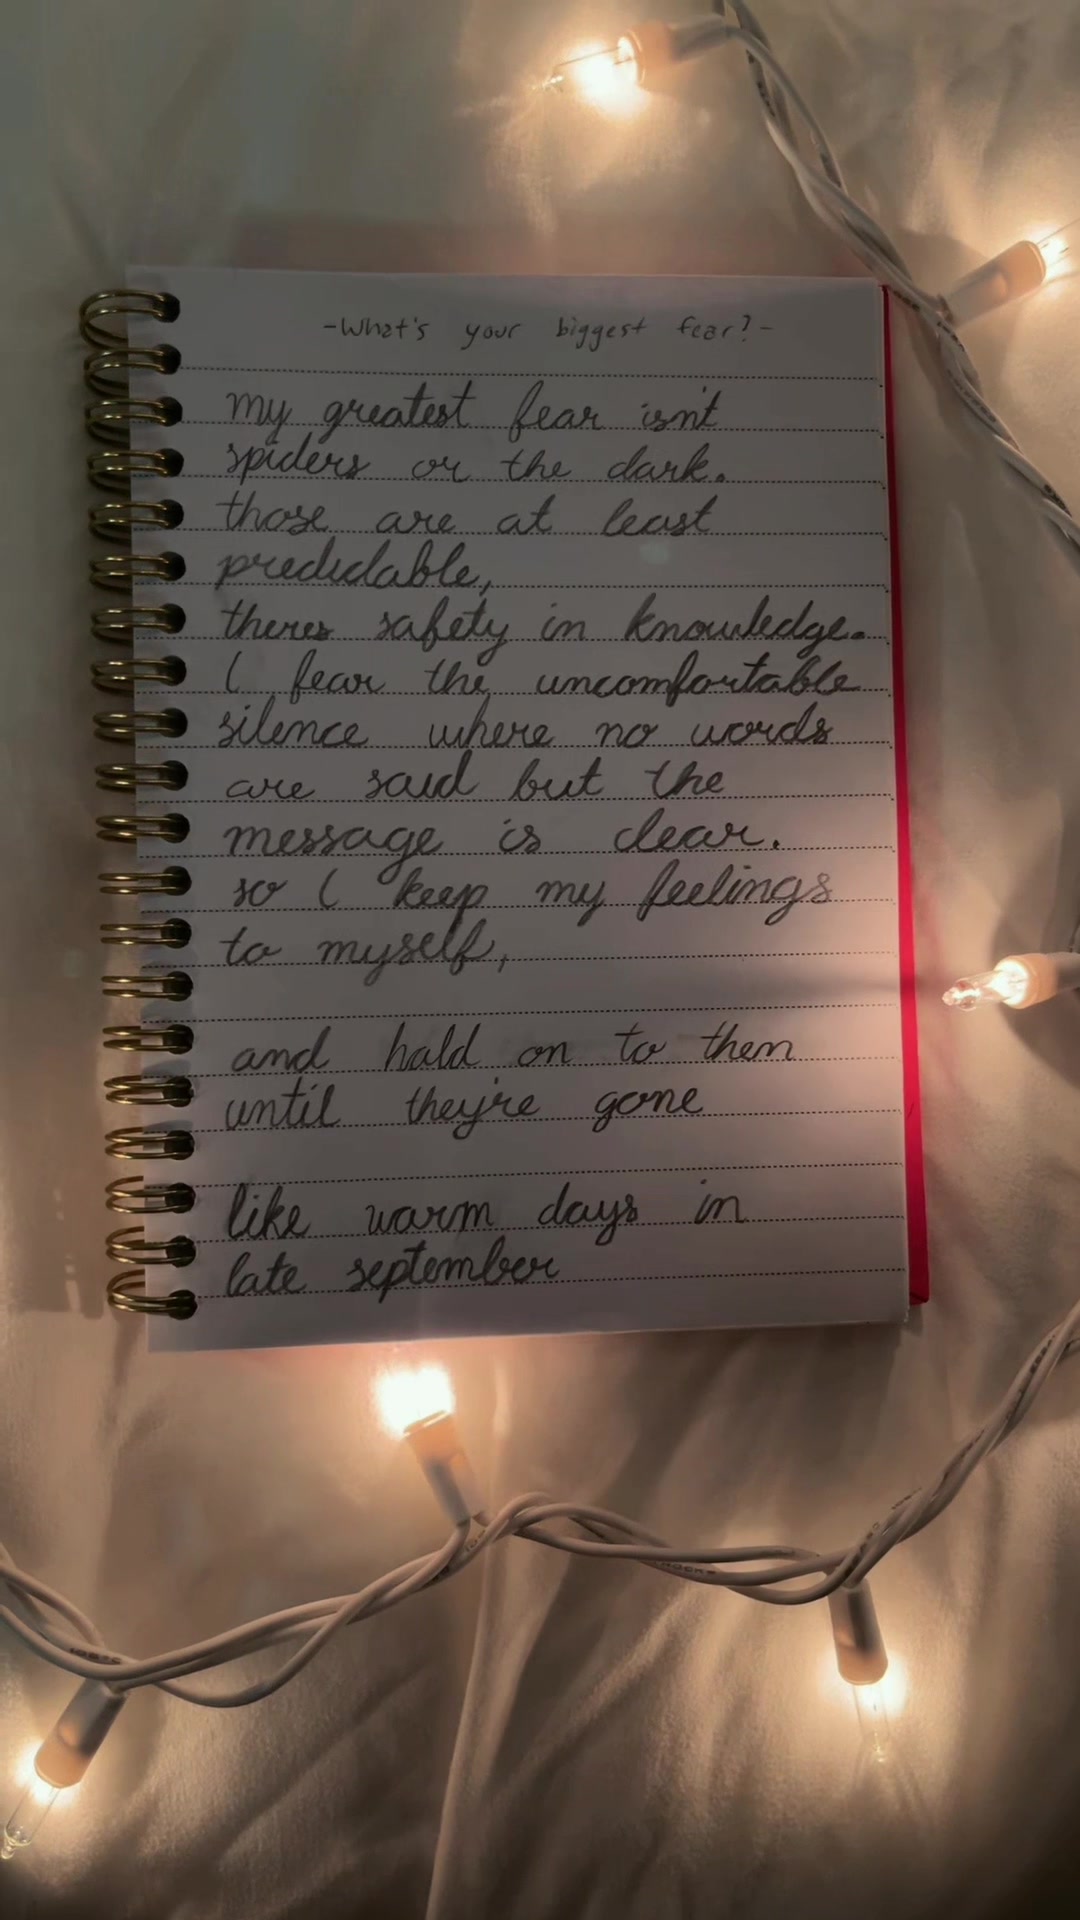 -What's your biggest fear?-
my greatest fear isn't
spiders or the dark.
those are at least
predictable,
theres safety in knowledge.
I fear the uncomfortable
silence where no words
are said but the
message is clear.
so I keep my feelings
to myself,
and hold on to them
until they're gone
like warm days in
late september